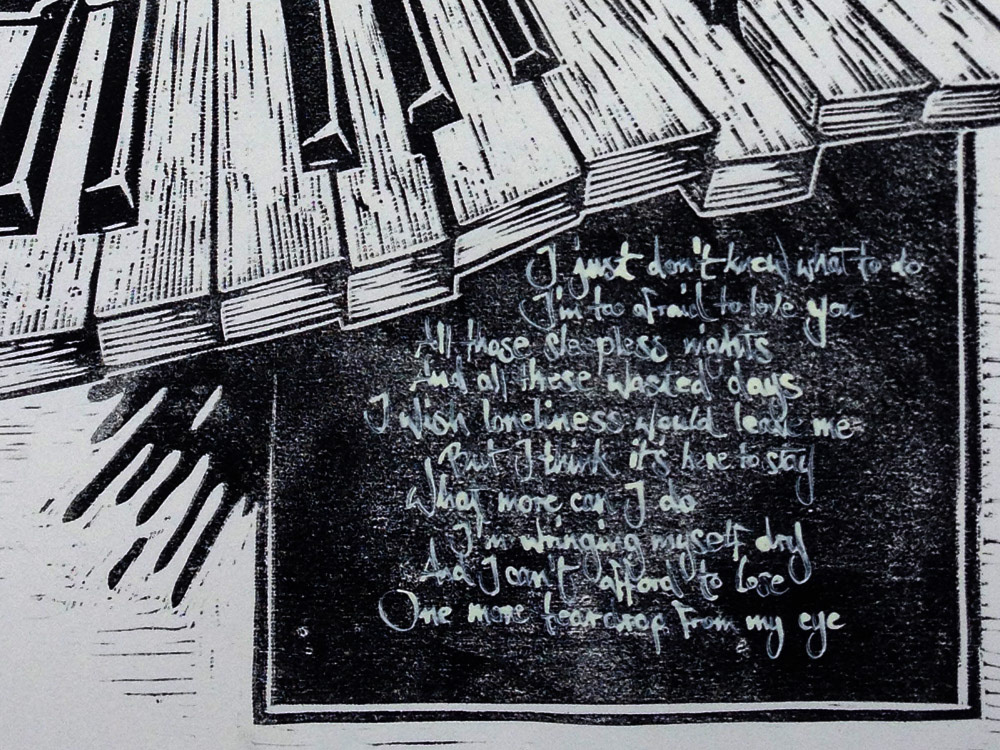 I just don't know what to do
I'm too afraid to love you
All those sleepless nights
And all these wasted days
I wish loneliness would leave me
But I think it's here to stay
What more can I do
I'm wringing myself dry
And I can't afford to lose
One more teardrop from my eye